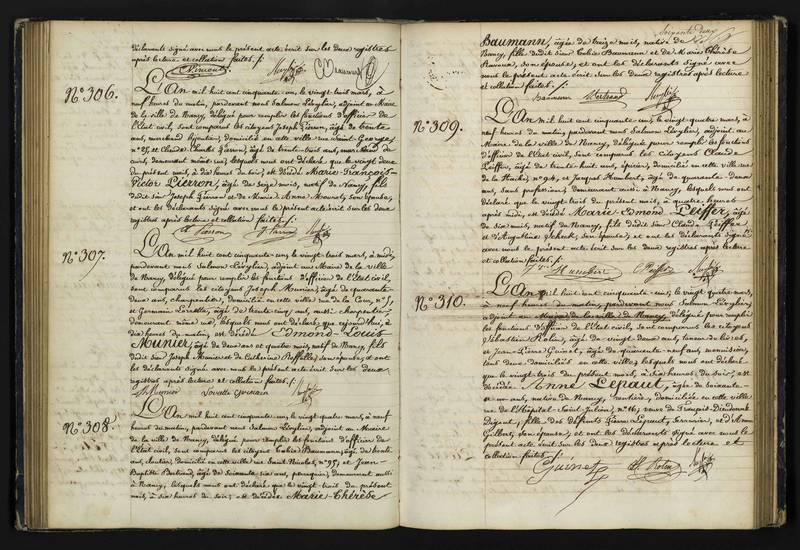 déclarants signé avec nous le présent acte écrit sur les deux registres
après lecture et collation faites ./.
N.º 306.
L'An mil huit cent cinquante-un, le vingt-trois mars, à
neuf heures du matin, pardevant nous Salmon Lévylier, adjoint au Maire
de la ville de Nancy, délégué pour remplir les fonctions d'officier de
l'Etat civil, sont comparus les citoyens Joseph Pierron, âgé de trente
ans, marchand
domicilié en cette ville rue Saint-Georges
n.º 25, et Claude Charles Pierron, âgé de trente-trois ans, marchand de
cuirs, demeurant même rue, lesquels nous ont déclaré que le vingt deux
du présent mois, à dix heures du soir, est décédé Marie-François-
Victor Pierron, âgé de seize mois, natif de Nancy, fils
dudit sieur Joseph Pierron et de Marie Anne Mounot, son épouse,
et ont les déclarants signé avec nous le présent acte écrit sur les deux
registres après lecture et collation faites ./.
N.º 307.
L'An mil huit cent cinquante-un, le vingt-trois mars, à midi,
pardevant nous Salmon Lévylier, adjoint au Maire de la ville
de Nancy, délégué pour remplir les fonctions d'officier de l'Etat civil,
sont comparus les citoyens Joseph Munier, âgé de quarante
deux ans, charpentier, domicilié en cette ville rue de la
n.º 51,
et Germain Lorrette, âgé de trente cinq ans, aussi charpentier,
demeurant même rue, lesquels nous ont déclaré que cejourd'hui, à
dix heures du matin, est décédé Edmond-Louis
Munier, âgé de deux ans et quatre mois, natif de Nancy, fils
dudit sieur Joseph Munier et de Catherine
son épouse, et ont
les déclarants signé avec nous le présent acte écrit sur les deux
registres après lecture et collation faites ./.
N.º 308.
L'An mil huit cent cinquante-un, le vingt-quatre mars, à neuf
heures du matin, pardevant nous Salmon Lévylier, adjoint au Maire
de la ville de Nancy, délégué pour remplir les fonctions d'officier de
l'Etat civil, sont comparus les citoyens Tobie Baumann, âgé de trente
ans, cloutier, domicilié en cette ville rue Saint-Nicolas, n.º 95, et Jean-
Baptiste Bertrand, âgé de soixante six ans, perruquier, demeurant aussi
à Nancy, lesquels nous ont déclaré que le vingt trois du présent
mois, à six heures du soir, est décédée Marie-Thérèse
Baumann, âgée de treize mois, native de
Nancy, fille dudit sieur Tobie Baumann et de Marie Thérèse
son épouse, et ont les déclarants signé avec
nous le présent acte écrit sur les deux registres après lecture
et collation faites ./.
Baumann Bertrand
N.º 309.
L'An mil huit cent cinquante-un, le vingt-quatre mars, à
neuf heures du matin, pardevant nous Salmon Lévylier, adjoint au
Maire de la ville de Nancy, délégué pour remplir les fonctions
d'officier de l'Etat civil, sont comparus les citoyens Claude
Peiffer, âgé de trente-huit ans, épicier, domicilié en cette ville rue
de la Hache, n.º 94, et Jacques Humbert, âgé de quarante-deux
ans, sans profession, demeurant aussi à Nancy, lesquels nous ont
déclaré que le vingt-trois du présent mois, à quatre heures
après midi, est décédé Marie-Edmond Peiffer, âgé
de six mois, natif de Nancy, fils dudit sieur Claude Peiffer
et d'Augustine
son épouse, et ont les déclarants signé
avec nous le présent acte écrit sur les deux registres après lecture
et collation faites ./.
N.º 310.
L'An mil huit cent cinquante-un, le vingt quatre mars,
à neuf heures du matin, pardevant nous Salmon Lévylier,
adjoint au Maire de la ville de Nancy, délégué pour remplir
les fonctions d'officier de l'Etat civil, sont comparus les citoyens
Sébastien Rolin, âgé de vingt-deux ans, teneur de livres,
et Jean-Pierre Guinet, âgé de quarante-neuf ans, menuisier,
tous deux domiciliés en cette ville, lesquels nous ont déclaré
que le vingt-trois du présent mois, à six heures du soir, est
décédée Anne Lepaut, âgée de soixante-
et-un ans, native de Nancy, rentière, domiciliée en cette ville
rue de l'Hôpital Saint-Julien, n.º 16, veuve de François-Dieudonné
fille des défunts Pierre Lepaut, serrurier, et d'Anne
son épouse, et ont les déclarants signé avec nous le
présent acte écrit sur les deux registres après lecture et
collation faites ./.
Guinet Rolin